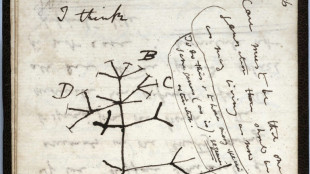 I think
B
D
C
Case must be that one
generation then should be
as many living as now
To do this & to have many species in
same genus (as is) requires
extinction.